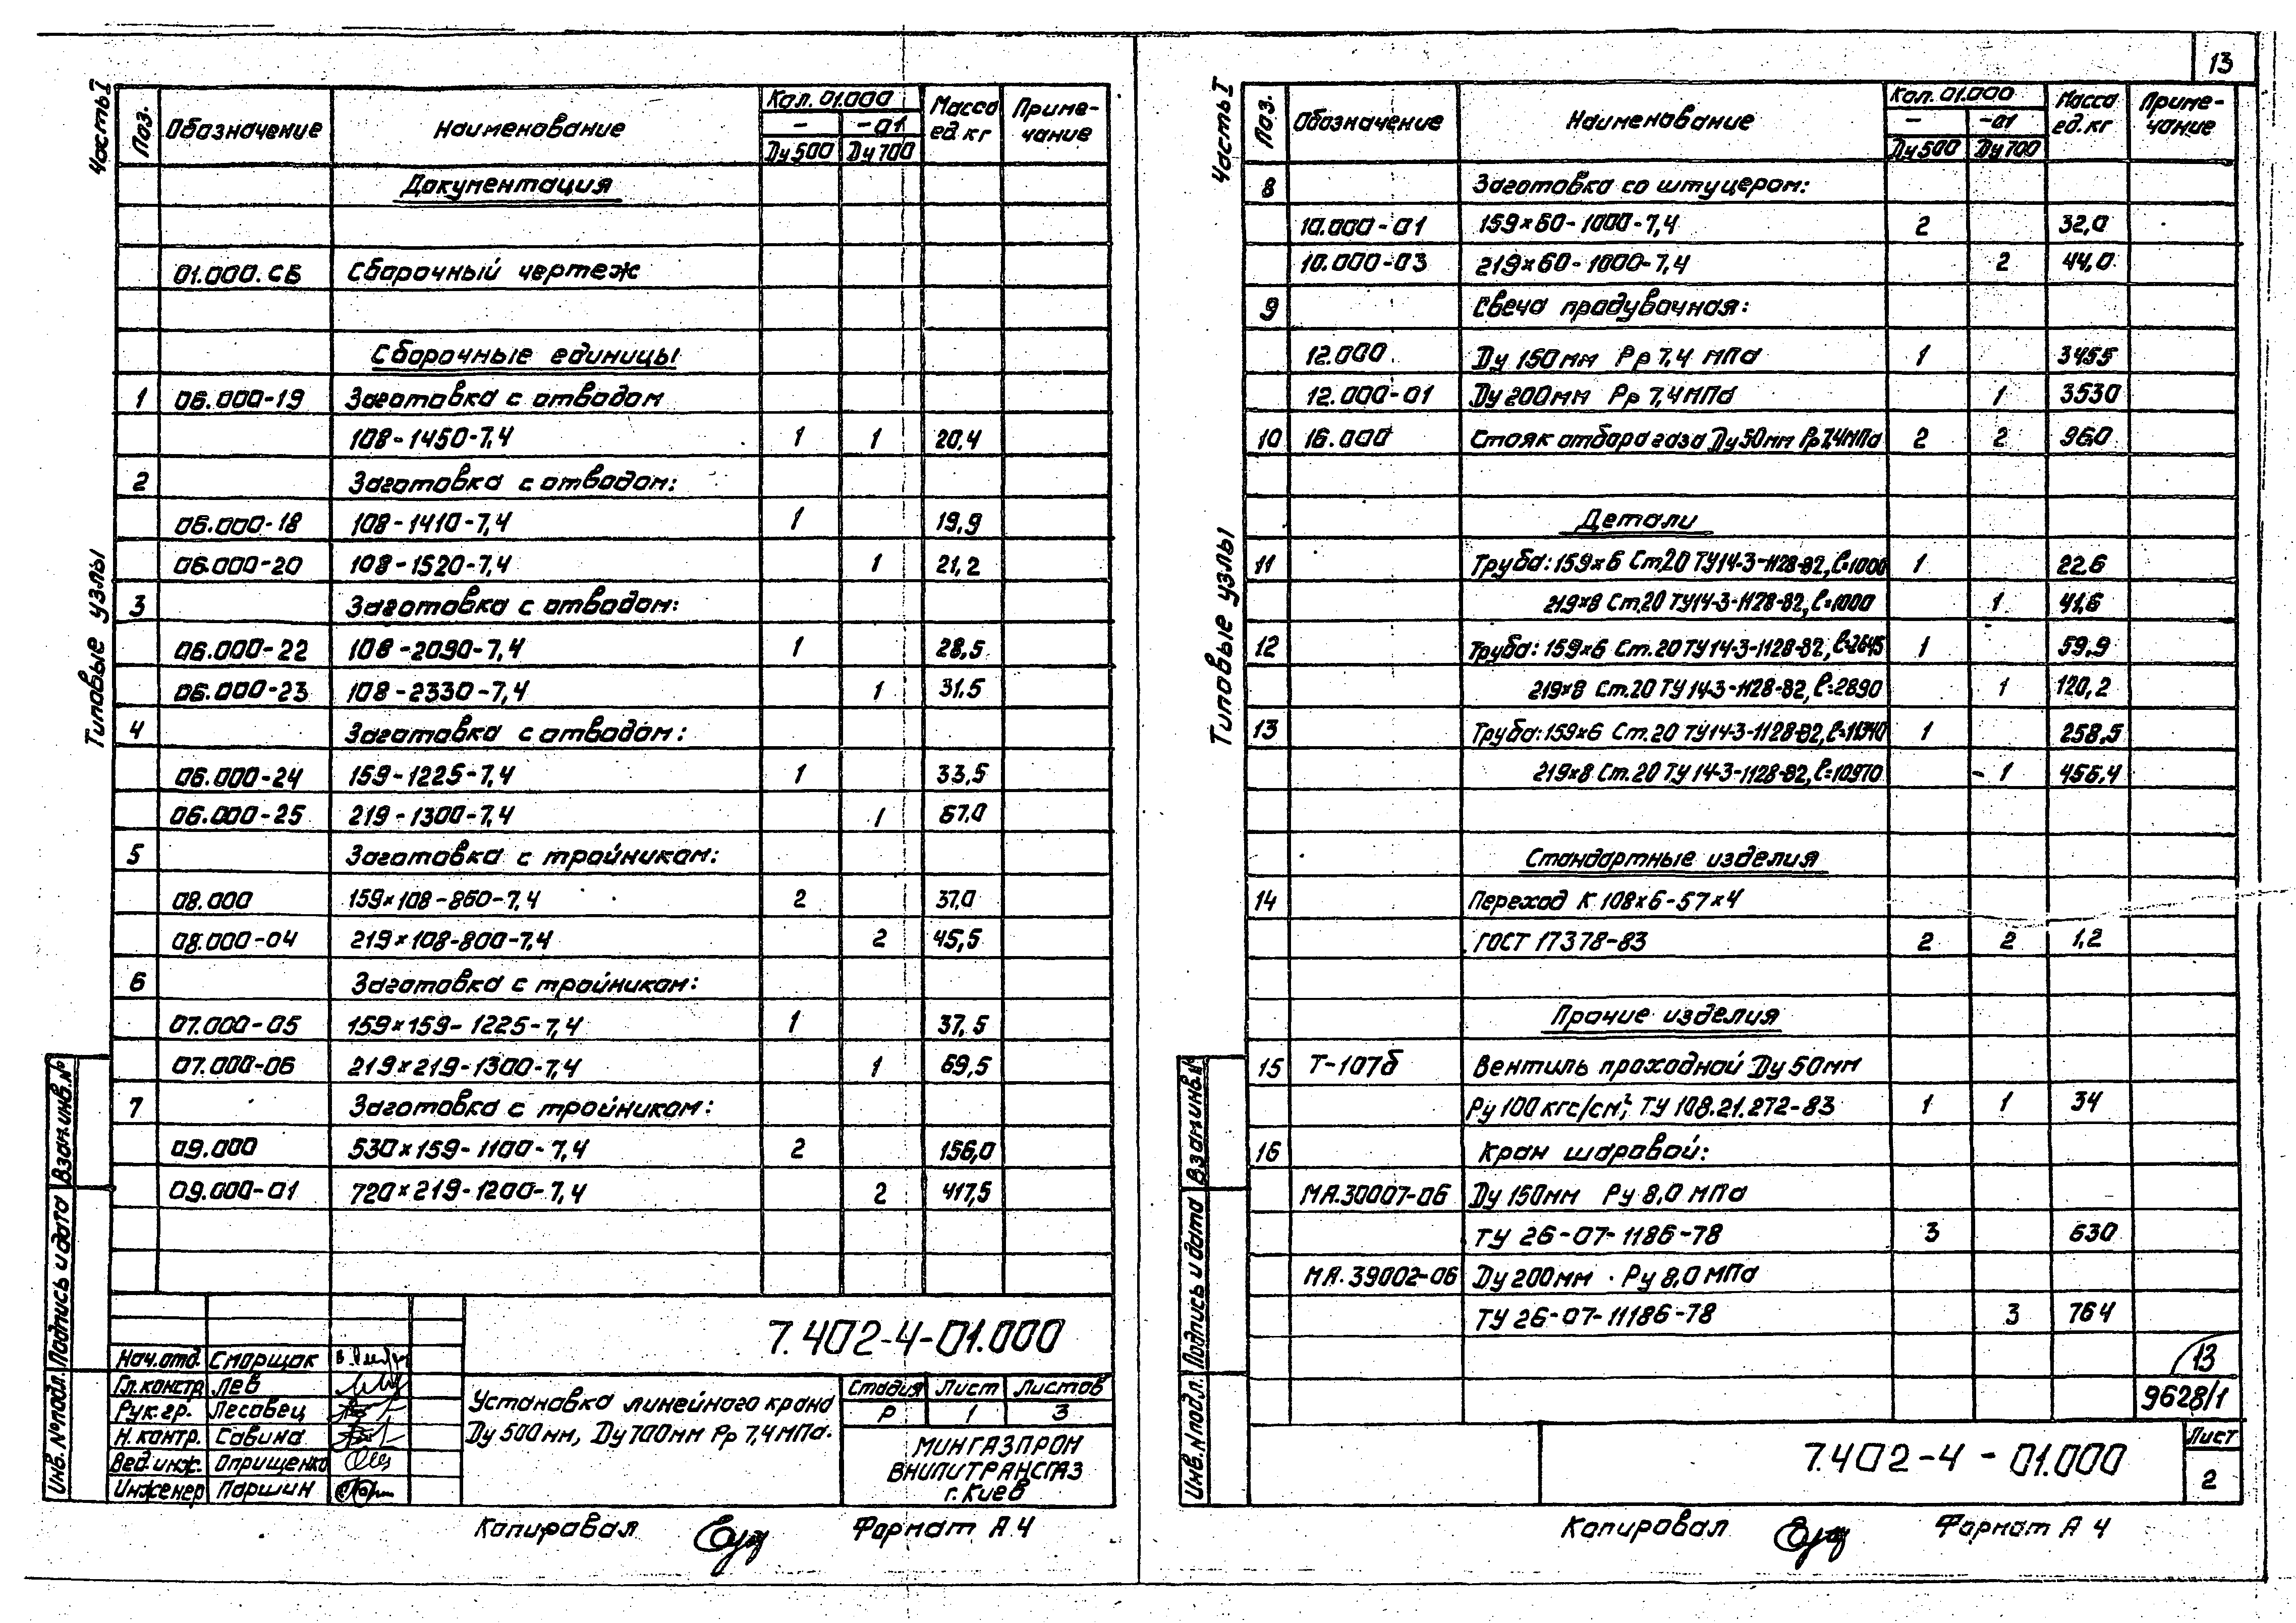 Часть I
Типовые узлы
Поз. Обозначение Наименование Кол. 01.000 Масса ед.кг Приме-чание
- -01
Ду 500 Ду 700
Документация
01.000.СБ Сборочный чертеж
Сборочные единицы
1 06.000-19 Заготовка с отводом
108-1450-7,4 1 1 20,4
2 Заготовка с отводом:
06.000-18 108-1410-7,4 1 19,9
06.000-20 108-1520-7,4 1 21,2
3 Заготовка с отводом:
06.000-22 108-2090-7,4 1 28,5
06.000-23 108-2330-7,4 1 31.5
4 Заготовка с отводом:
06.000-24 159-1225-7,4 1 33,5
06.000-25 219-1300-7,4 1 67.0
5 Заготовка с тройником:
08.000 159×108-860-7,4 2 37,0
08.000-04 219×108-800-7,4 2 45,5
6 Заготовка с тройником:
07.000-05 159×159-1225-7,4 1 37,5
07.000-06 219×219-1300-7,4 1 69,5
7 Заготовка с тройником:
09.000 530×159-1100-7,4 2 156,0
09.000-01 720×219-1200-7,4 2 417,5
7.402-4-01.000
Нач.отд. Сморщак
Гл.констр Лев
Рук.гр. Лесовец
Н.контр. Савина
Вед.инж. Оприщенко
Инженер Паршин
Установка линейного крана
Ду 500мм, Ду 700мм Рр 7,4МПа.
Стадия Лист Листов
Р 1 3
МИНГАЗПРОМ
ВНИПИТРАНСГАЗ
г. Киев
Инв.№подл. Подпись и дата Взам.инв.№
Копировал Формат А4
13
Часть I
Типовые узлы
Поз. Обозначение Наименование Кол. 01.000 Масса ед.кг Приме-чание
- -01
Ду 500 Ду 700
8 Заготовка со штуцером:
10.000-01 159×60-1000-7,4 2 32,0
10.000-03 219×60-1000-7,4 2 44,0
9 Свеча продувочная:
12.000 Ду 150мм Рр 7,4 МПа 1 345,5
12.000-01 Ду 200мм Рр 7,4МПа 1 353,0
10 16.000 Стояк отбора газа Ду 50мм Рр 7,4МПа 2 2 96,0
Детали
11 Труба: 159×6 Ст.20 ТУ14-3-1128-82, ℓ=1000 1 22.6
219×8 Ст.20 ТУ14-3-1128-82, ℓ=1000 1 41,6
12 Труба: 159×6 Ст.20 ТУ14-3-1128-82, ℓ=2645 1 59,9
219×8 Ст.20 ТУ14-3-1128-82, ℓ=2890 1 120,2
13 Труба: 159×6 Ст.20 ТУ14-3-1128-82, ℓ=11340 1 258,5
219×8 Ст.20 ТУ14-3-1128-82, ℓ=10970 1 456,4
Стандартные изделия
14 Переход К 108×6-57×4
ГОСТ 17378-83 2 2 1,2
Прочие изделия
15 Т-107б Вентиль проходной Ду 50мм
Ру 100 кгс/см², ТУ 108.21.272-83 1 1 34
16 Кран шаровой:
МА.30007-06 Ду 150мм Ру 8,0 МПа
ТУ 26-07-1186-78 3 630
МА.39002-06 Ду 200мм Ру 8,0 МПа
ТУ 26-07-11186-78 3 764
13
9628/1
7.402-4-01.000
Лист
2
Инв.№подл. Подпись и дата Взам.инв.№
Копировал Формат А4